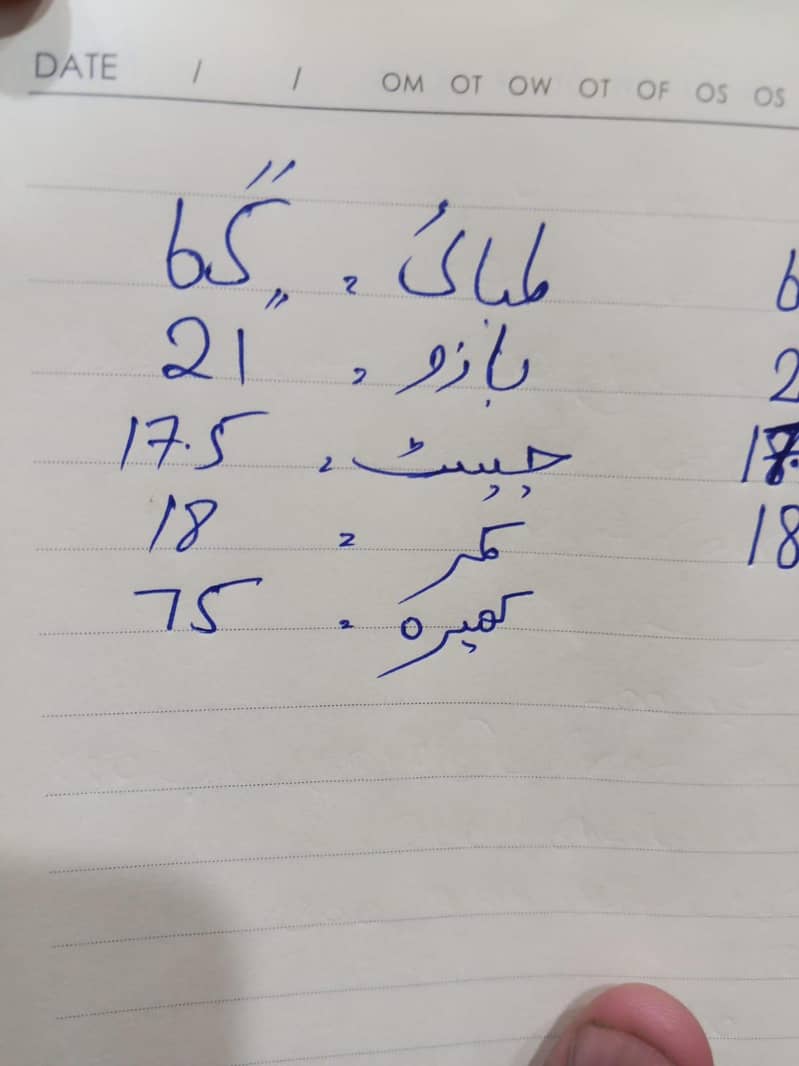 DATE / / OM OT OW OT OF OS OS
لمبائ = 65"
بازو = 21"
چیسٹ = 17.5
کمر = 18
گھیرہ = 75